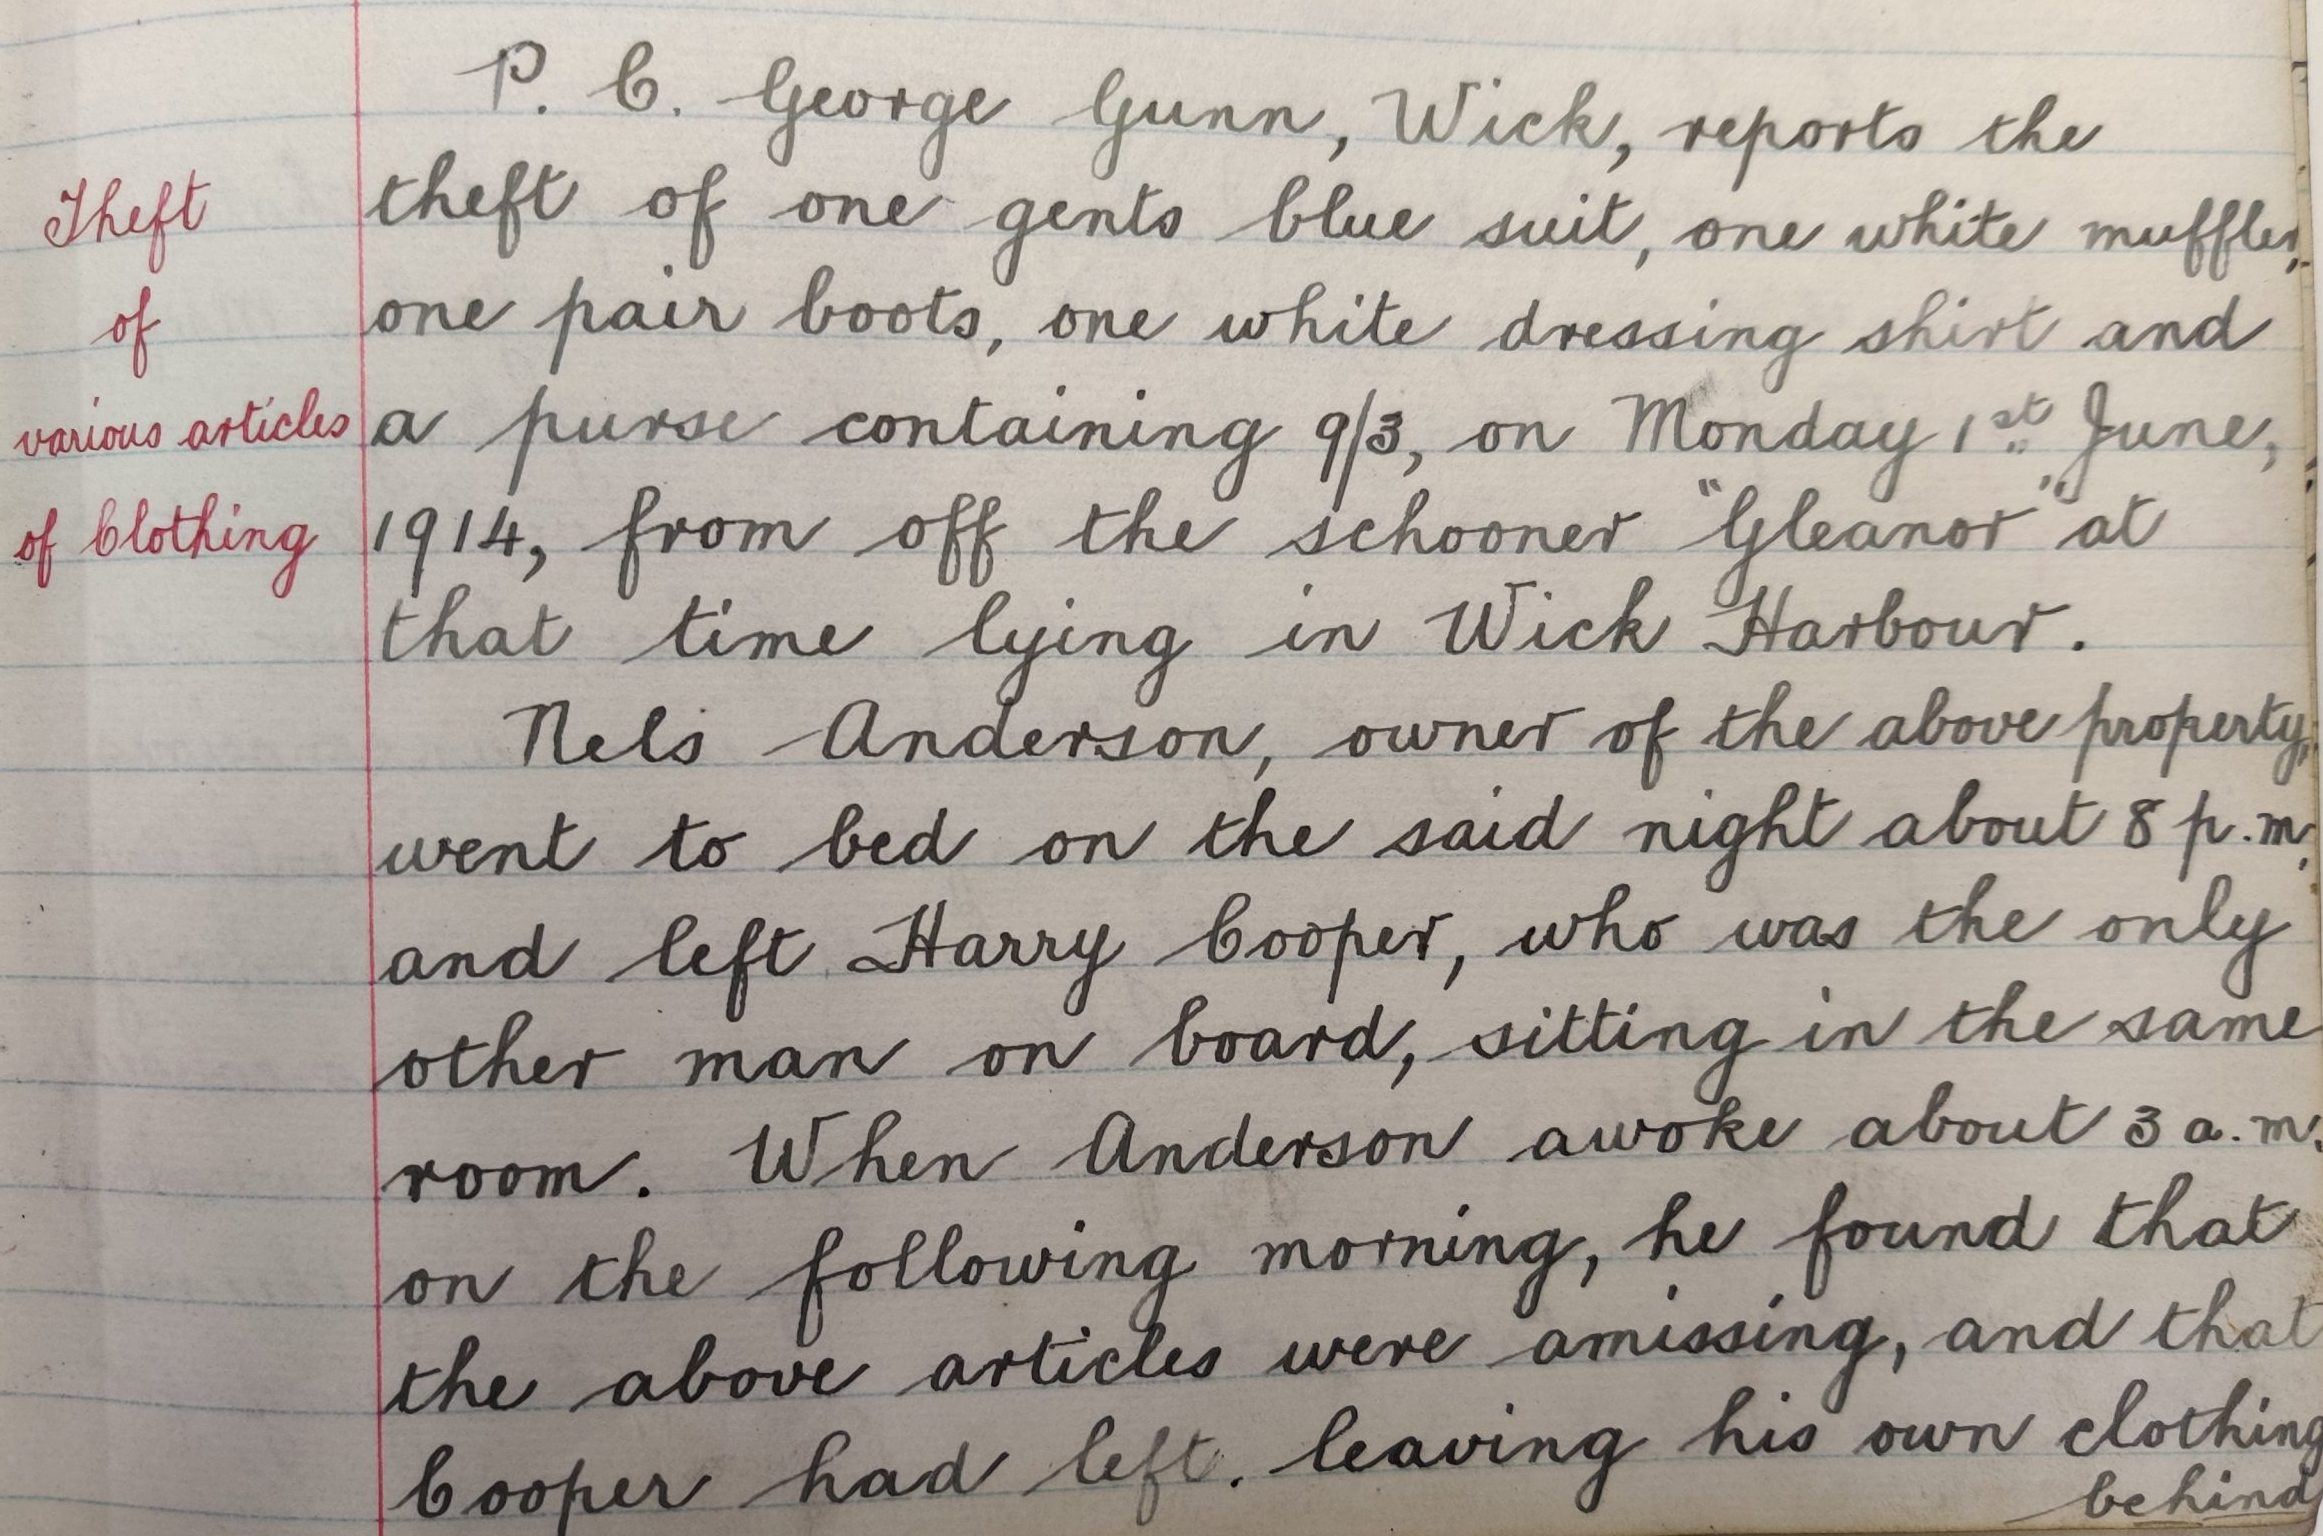 P. C. George Gunn, Wick, reports the
Theft
theft of one gents blue suit, one white muffler,
of
one pair boots, one white dressing shirt and
various articles
a purse containing 9/3, on Monday 1st June,
of Clothing
1914, from off the schooner "Gleanor" at
that time lying in Wick Harbour.
Nels Anderson, owner of the above property,
went to bed on the said night about 8 p.m.
and left Harry Cooper, who was the only
other man on board, sitting in the same
room. When Anderson awoke about 3 a.m.
on the following morning, he found that
the above articles were amissing, and that
Cooper had left. leaving his own clothing
behind